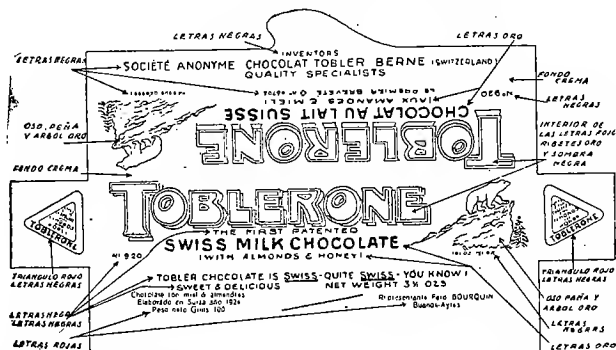 LETRAS NEGRAS
LETRAS ORO
INVENTORS
LETRAS NEGRAS
SOCIÉTÉ ANONYME CHOCOLAT TOBLER BERNE (SWITZERLAND)
QUALITY SPECIALISTS
FONDO CREMA
LETRAS NEGRAS
Nº 920
AUX AMANDES & MIEL
CHOCOLAT AU LAIT SUISSE
TOBLERONE
OSO, PEÑA Y ARBOL ORO
INTERIOR DE LAS LETRAS ROJO
RIBETES ORO
Y SOMBRA NEGRA
FONDO CREMA
TOBLERONE
THE FIRST PATENTED
SWISS MILK CHOCOLATE
(WITH ALMONDS & HONEY)
TOBLERONE
TOBLERONE
Nº 920
TOBLER CHOCOLATE IS SWISS - QUITE SWISS - YOU KNOW!
SWEET & DELICIOUS
NET WEIGHT 3½ OZS
Chocolate con miel & almendras
Elaborado en Suiza año 1924
Peso neto Grms 100
Représentant Para BOURQUIN
Buenos-Ayres
TRIANGULO ROJO
LETRAS NEGRAS
LETRAS NEGRAS
LETRAS NEGRAS
LETRAS ROJAS
TRIANGULO ROJO
LETRAS NEGRAS
OSO PAÑA Y
ARBOL ORO
LETRAS
NEGRAS
LETRAS ORO